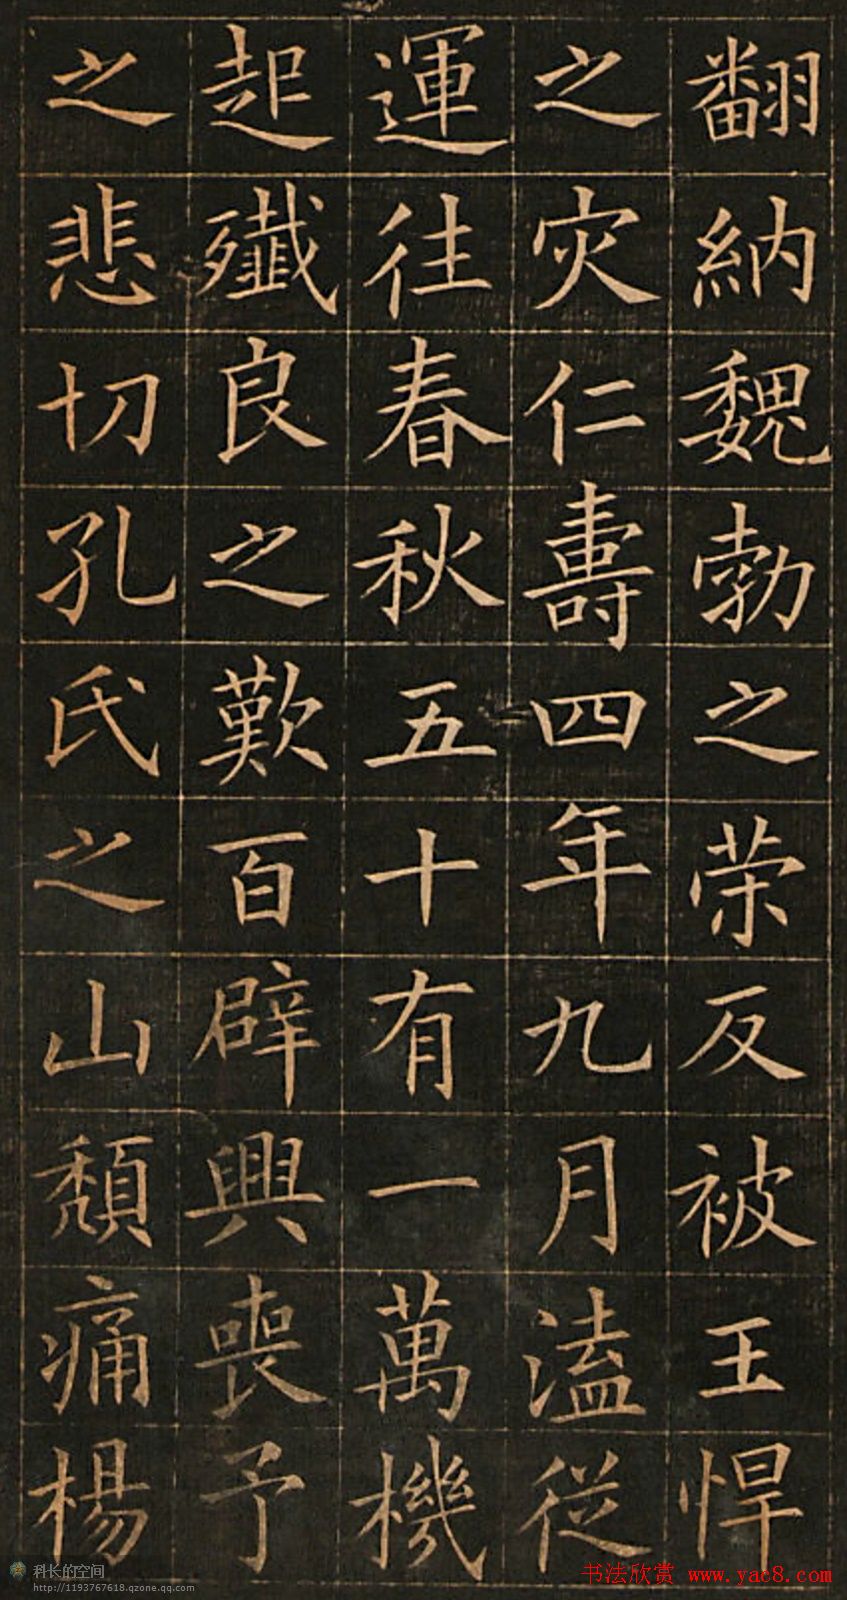 翻納魏勃之荣反被王悍
之灾仁壽四年九月溘從
運往春秋五十有一萬機
起殲良之歎百辟興喪予
之悲切孔氏之山頹痛楊
科长的空间
http://1193767618.qzone.qq.com
书法欣赏 www.yac8.com